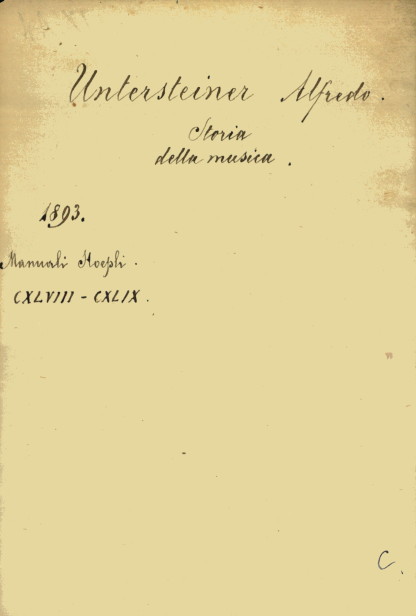 Untersteiner Alfredo.
Storia
della musica.
1893.
Manuali Hoepli.
CXLVIII - CXLIX.
C.